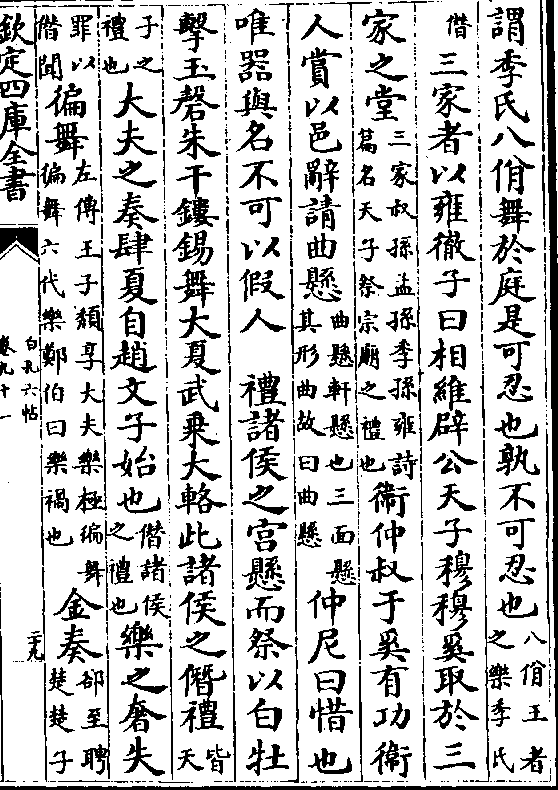 謂季氏八佾舞於庭是可忍也孰不可忍也八佾王者之樂季氏
僣三家者以雍徹子曰相維辟公天子穆穆奚取於三
家之堂三家叔孫孟孫季孫雍詩篇名天子祭宗廟之禮也衞仲叔于奚有功衞
人賞以邑辭請曲懸曲懸軒懸也三面懸其形曲故曰曲懸仲尼曰惜也
唯器與名不可以假人 禮諸侯之宫懸而祭以白牡
擊玉磬朱干鏤錫舞大夏武乗大輅此諸侯之僭禮皆天
子之禮也大夫之奏肆夏自趙文子始也僣諸侯之禮也樂之奢失
罪以僣聞徧舞左傳王子頽享大夫樂極徧舞徧舞六代樂鄭伯曰樂禍也金奏郤至聘楚楚子
欽定四庫全書
白孔六帖
卷九十一
二十九